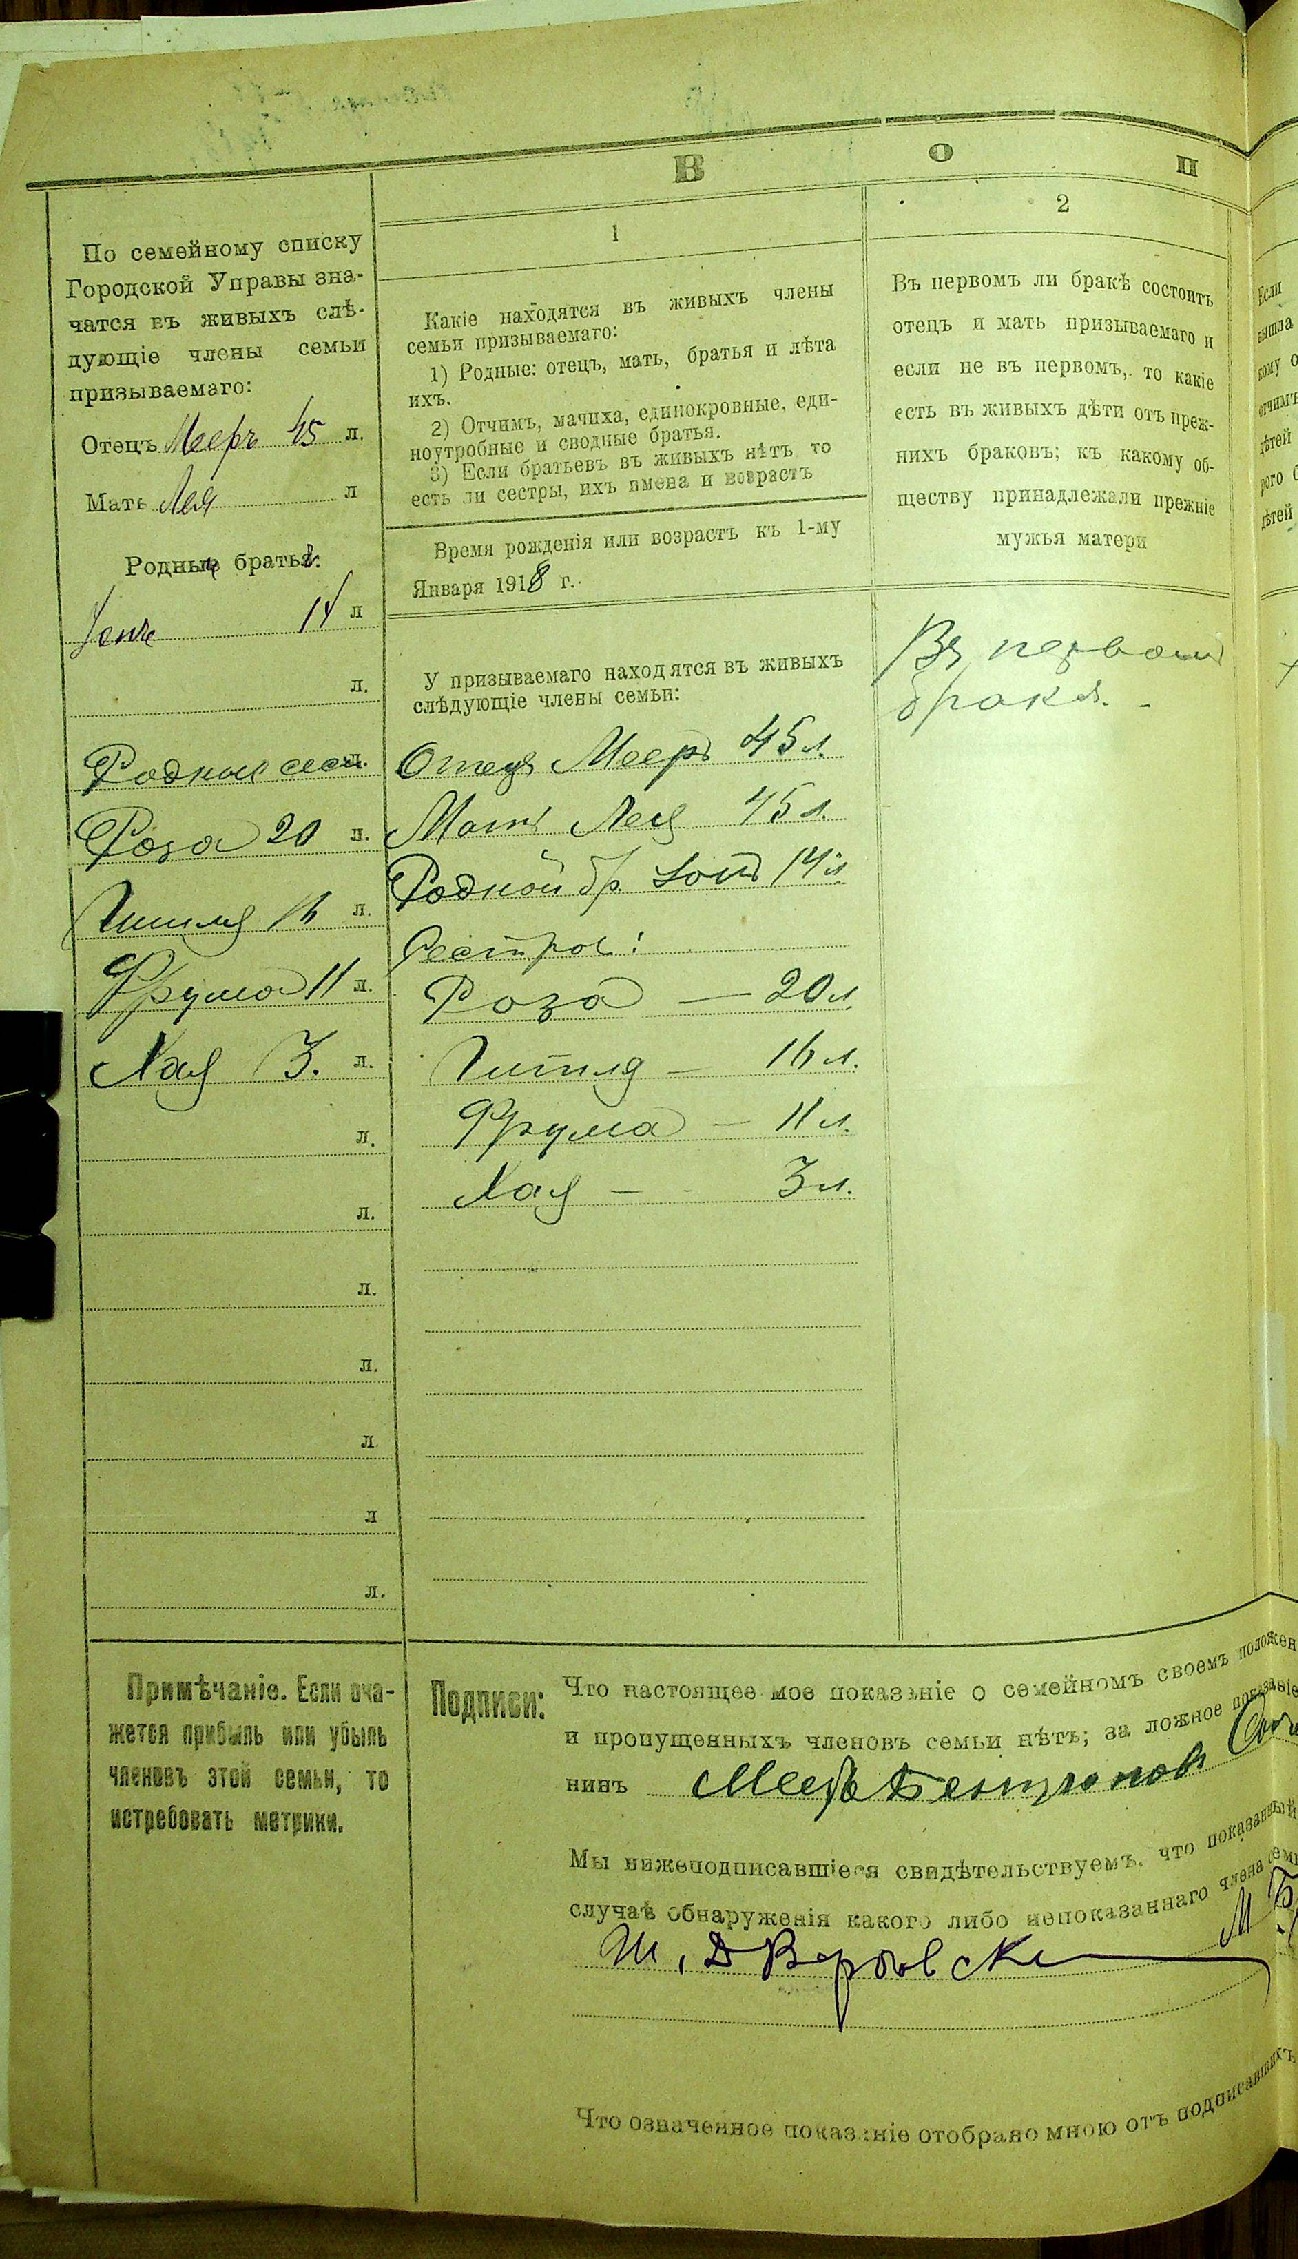 В О П
По семейному списку
Городской Управы зна-
чатся въ живыхъ слѣ-
дующіе члены семьи
призываемаго:
Отецъ Мееръ 45 л.
Мать Лея л
Родные братья:
14 л
л.
Родные сест.
Роза 20 л.
Гитля 16 л.
Фрума 11 л.
Хая 3. л.
л.
л.
л.
л.
л
л
л.
1
Какіе находятся въ живыхъ члены
семьи призываемаго:
1) Родные: отецъ, мать, братья и лѣта
ихъ.
2) Отчимъ, мачиха, единокровные, еди-
ноутробные и сводные братья.
3) Если братьевъ въ живыхъ нѣтъ, то
есть ли сестры, ихъ имена и возрастъ
Время рожденія или возрастъ къ 1-му
Января 1918 г.
У призываемаго находятся въ живыхъ
слѣдующіе члены семьи:
Отецъ Мееръ 45 л.
Мать Лея 45 л.
Родной бр. 14 л
Сестры:
Роза — 20 л
Гитля — 16 л.
Фрума — 11 л.
Хая — 3 л.
2
Въ первомъ ли бракѣ состоитъ
отецъ и мать призываемаго и
если не въ первомъ, то какіе
есть въ живыхъ дѣти отъ преж-
нихъ браковъ; къ какому об-
ществу принадлежали прежніе
мужья матери
Въ первомъ
бракѣ.
Если
вышла
кому о
отчимъ
дѣтей
рого
дѣтей
Примѣчаніе. Если ока-
жется прибыль или убыль
членовъ этой семьи, то
истребовать метрики.
Подписи:
Что настоящее мое показаніе о семейномъ своемъ положен
и пропущенныхъ членовъ семьи нѣтъ; за ложное показаніе
нинъ Мееръ Бенціоновъ
Мы нижеподписавшіеся свидѣтельствуемъ, что показанный
случаѣ обнаруженія какого либо непоказаннаго члена семь
Ш. Дворовски М
Что означенное показаніе отобрано мною отъ подписавшихъ